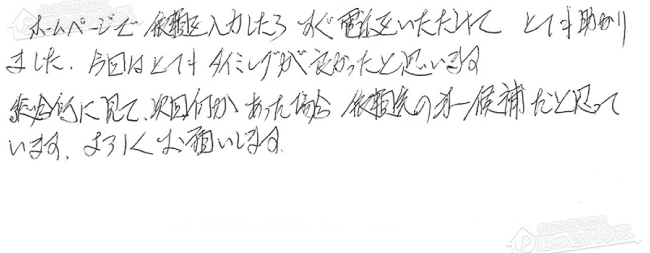 ホームページで依頼を入力したらすぐ電話をいただけて とても助かり
ました。今回はとてもタイミングが良かったと思います
総合的に見て、次回何かあった場合 依頼先の才一候補だと思って
います。よろしくお願いします。